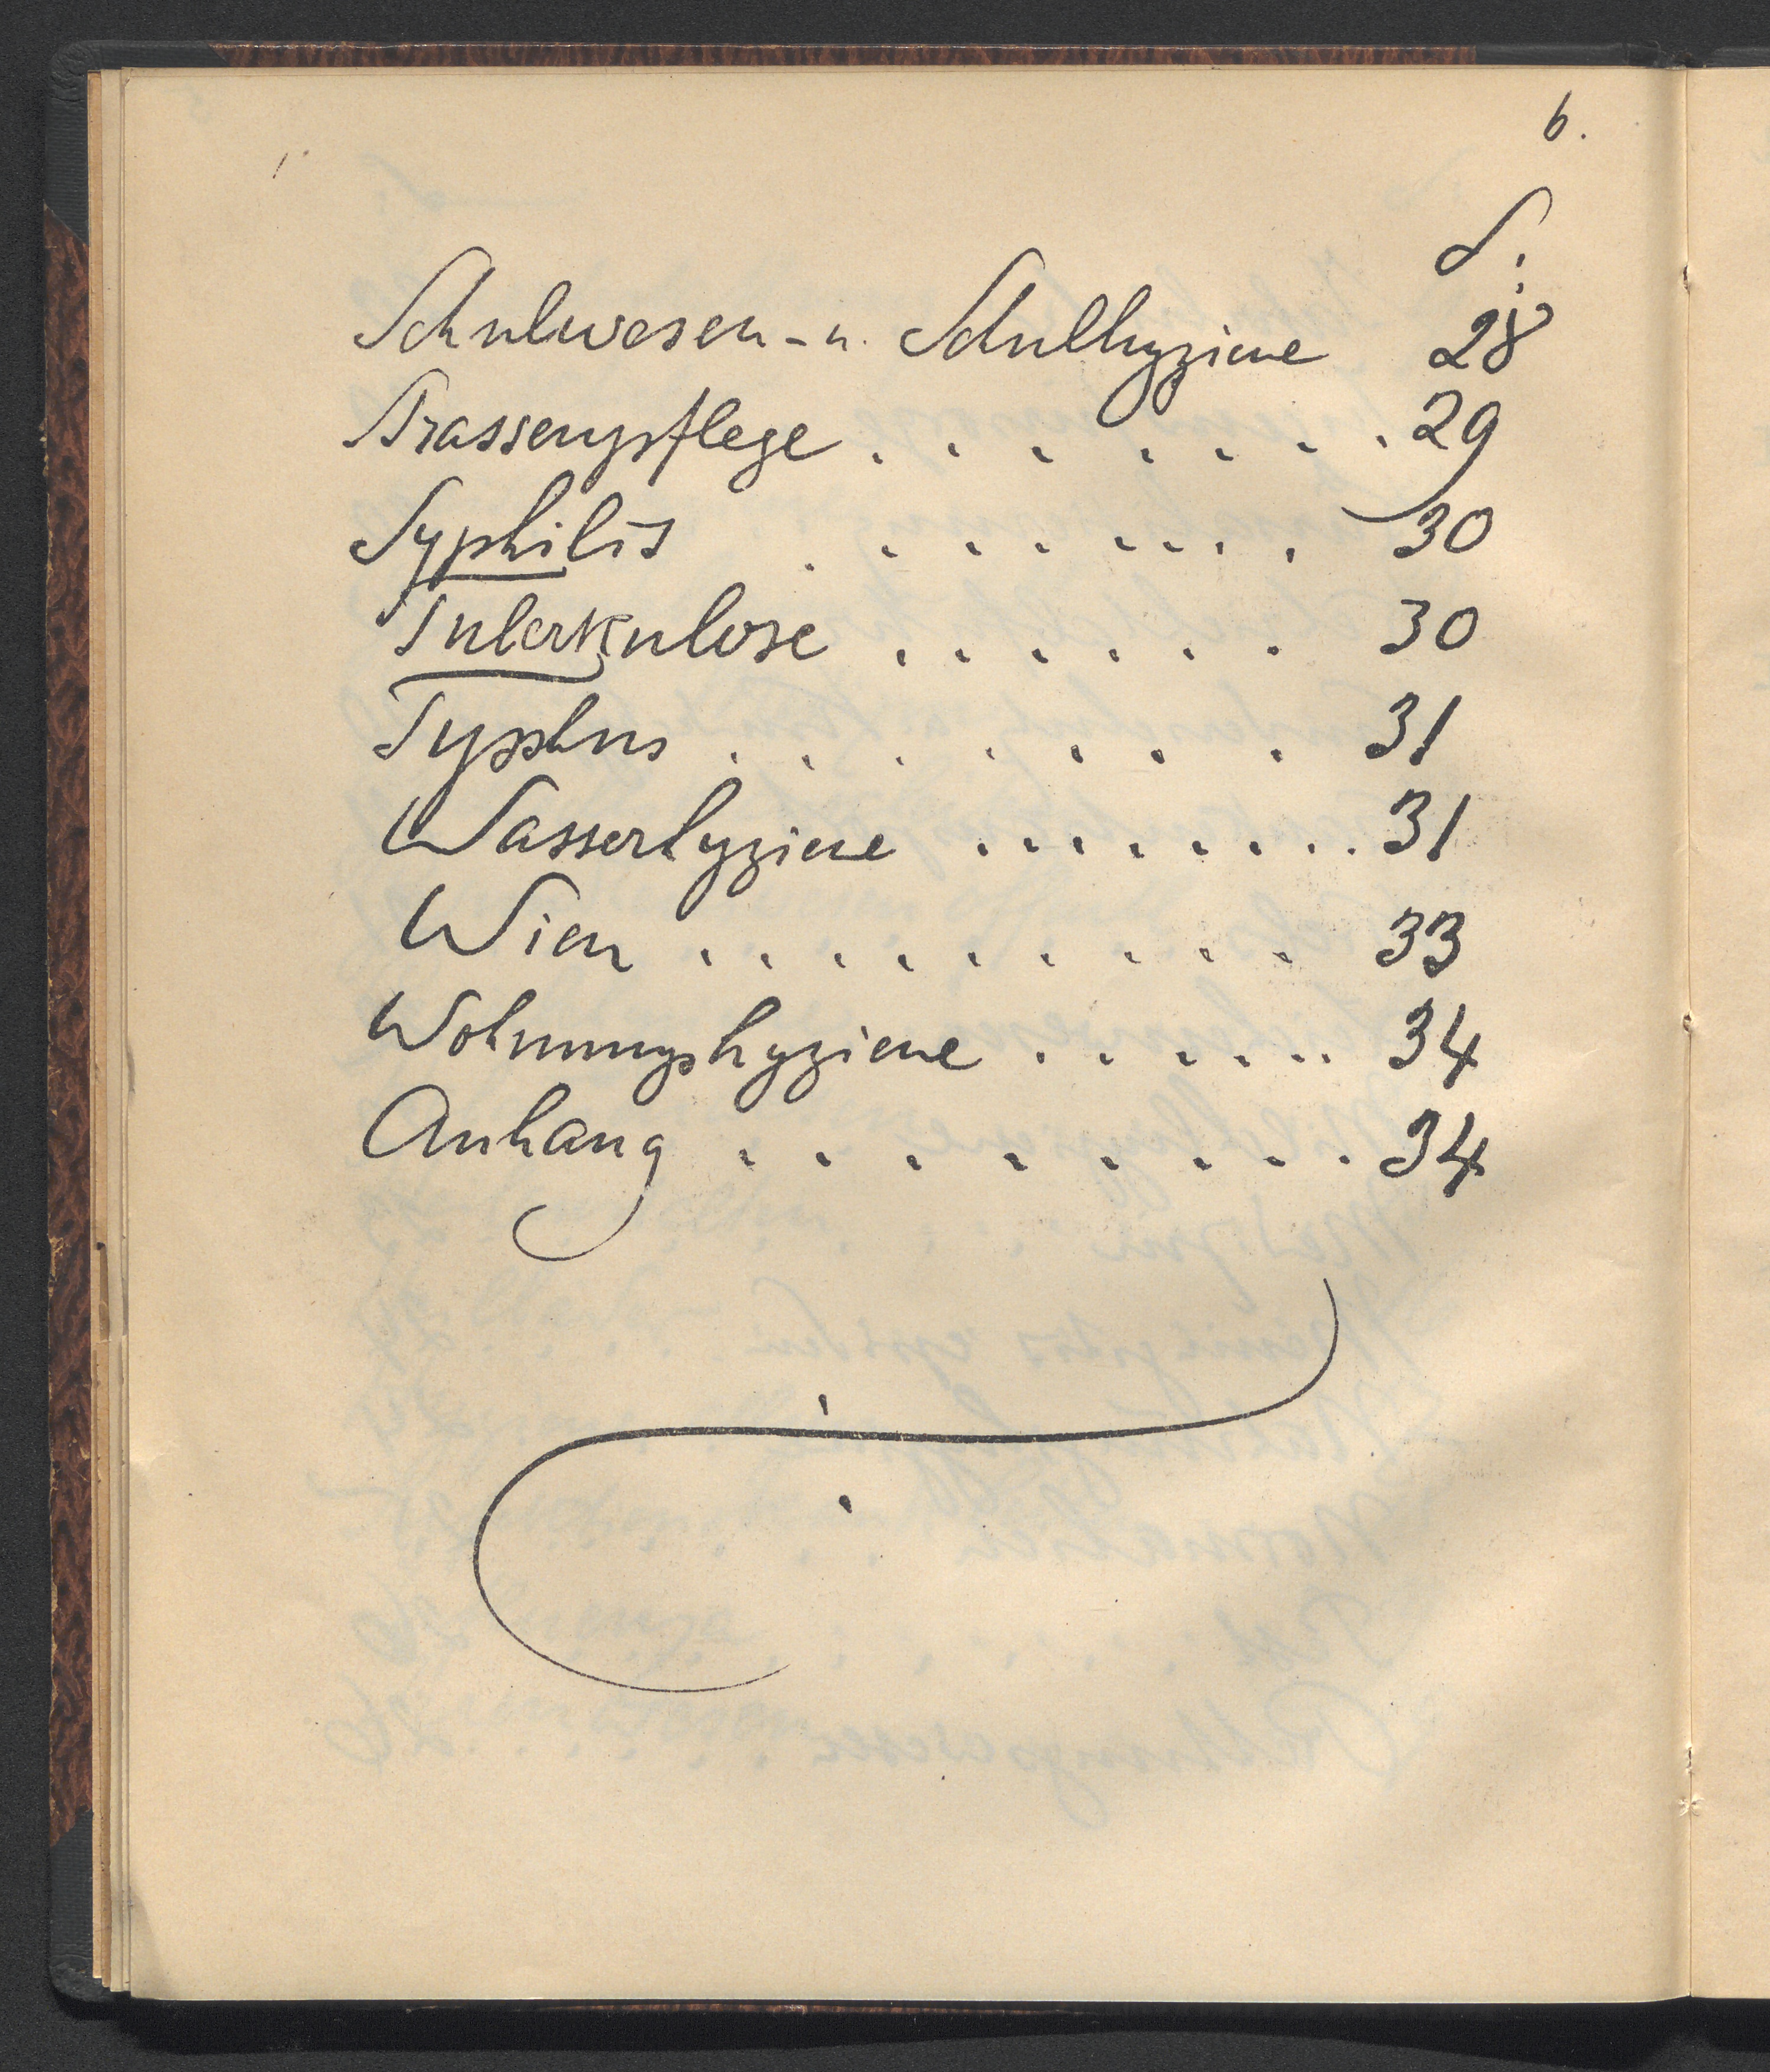 6.
S.
Schulwesen- u. Schulhygiene 28
Strassenpflege . . . . . . . 29
Syphilis . . . . . . . . 30
Tuberkulose . . . . . . 30
Typhus . . . . . . . 31
Wasserhygiene . . . . . . . . 31
Wien . . . . . . . . . . 33
Wohnungshygiene . . . . . . 34
Anhang . . . . . . . . 34